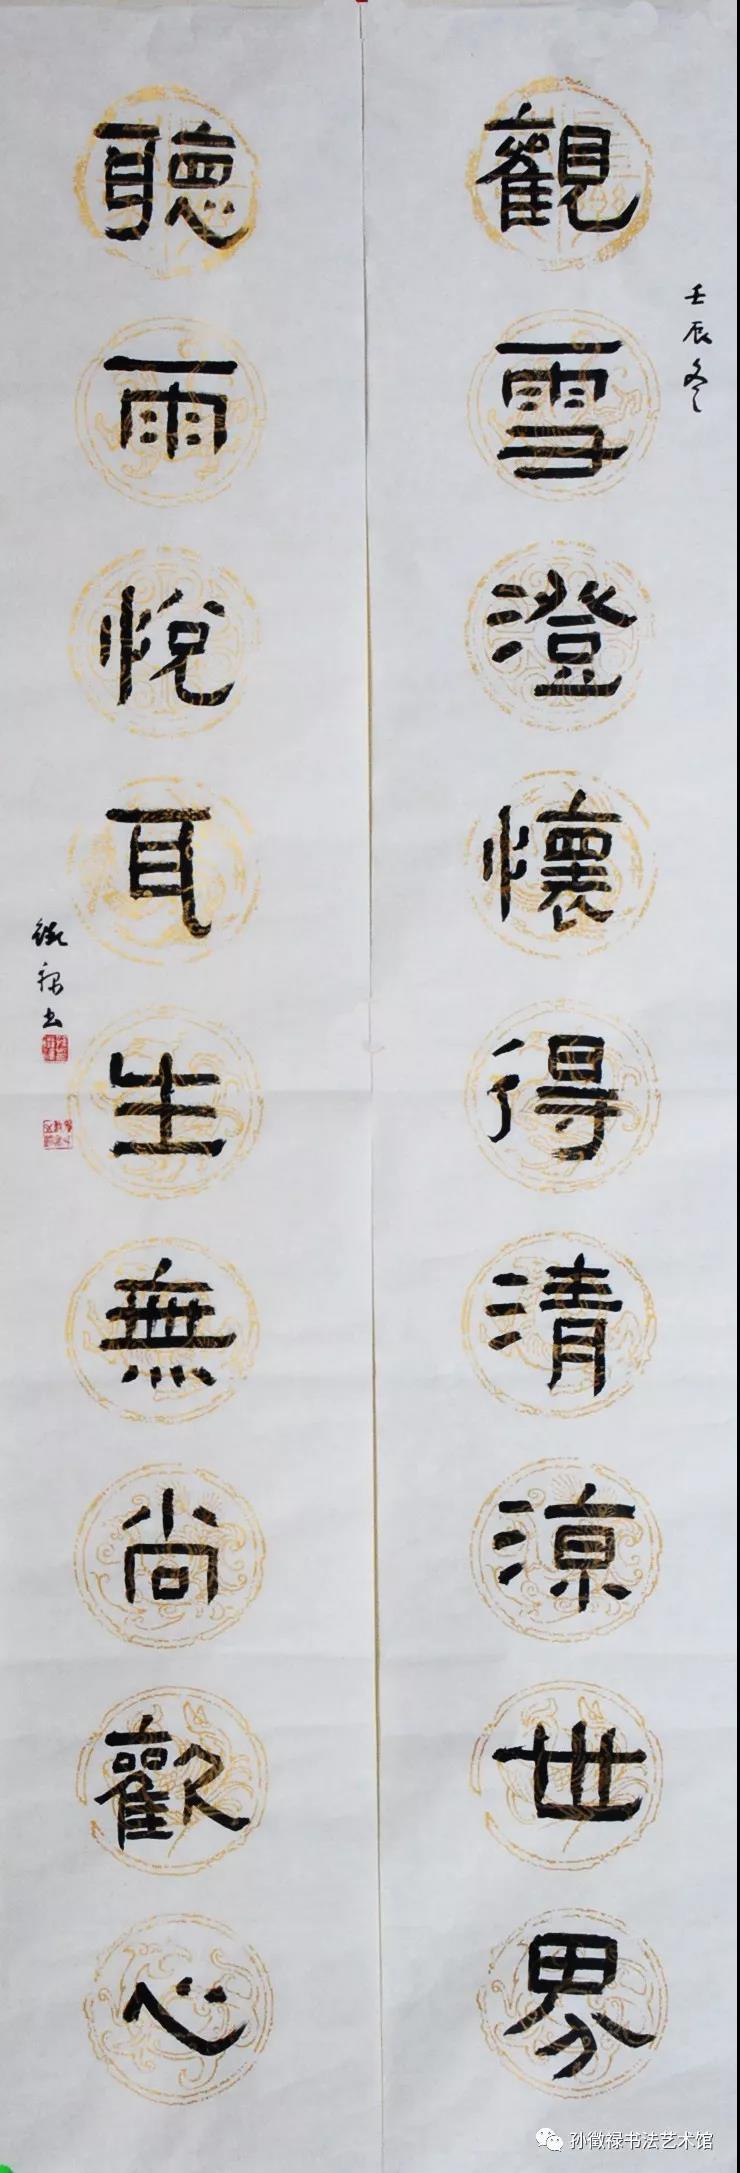 壬辰冬
觀雪澄懷得清涼世界
聽雨悅耳生無尚歡心
徵祿书
孙徵禄书法艺术馆